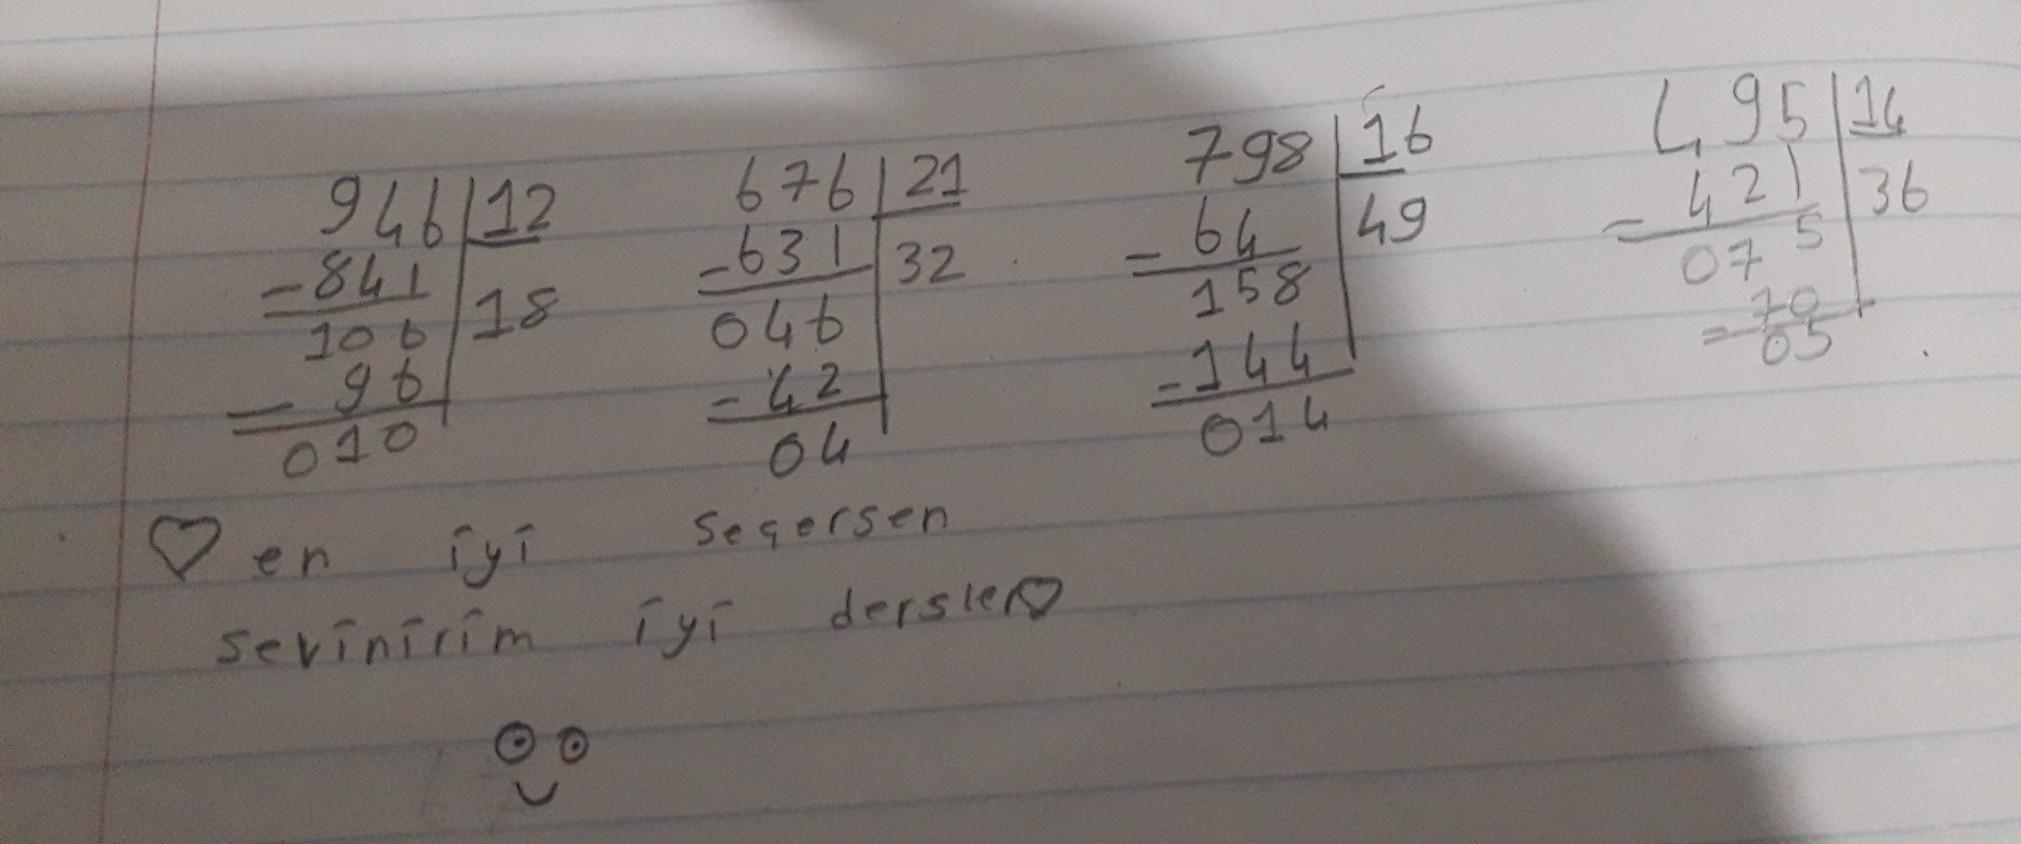 946 12
-841 18
106
- 96
010
676 21
-631 32
046
- 42
04
798 16
- 64 49
158
- 144
014
495 14
- 421 36
075
- 70
05
♡ en iyi seçersen
sevinirim iyi dersler♡